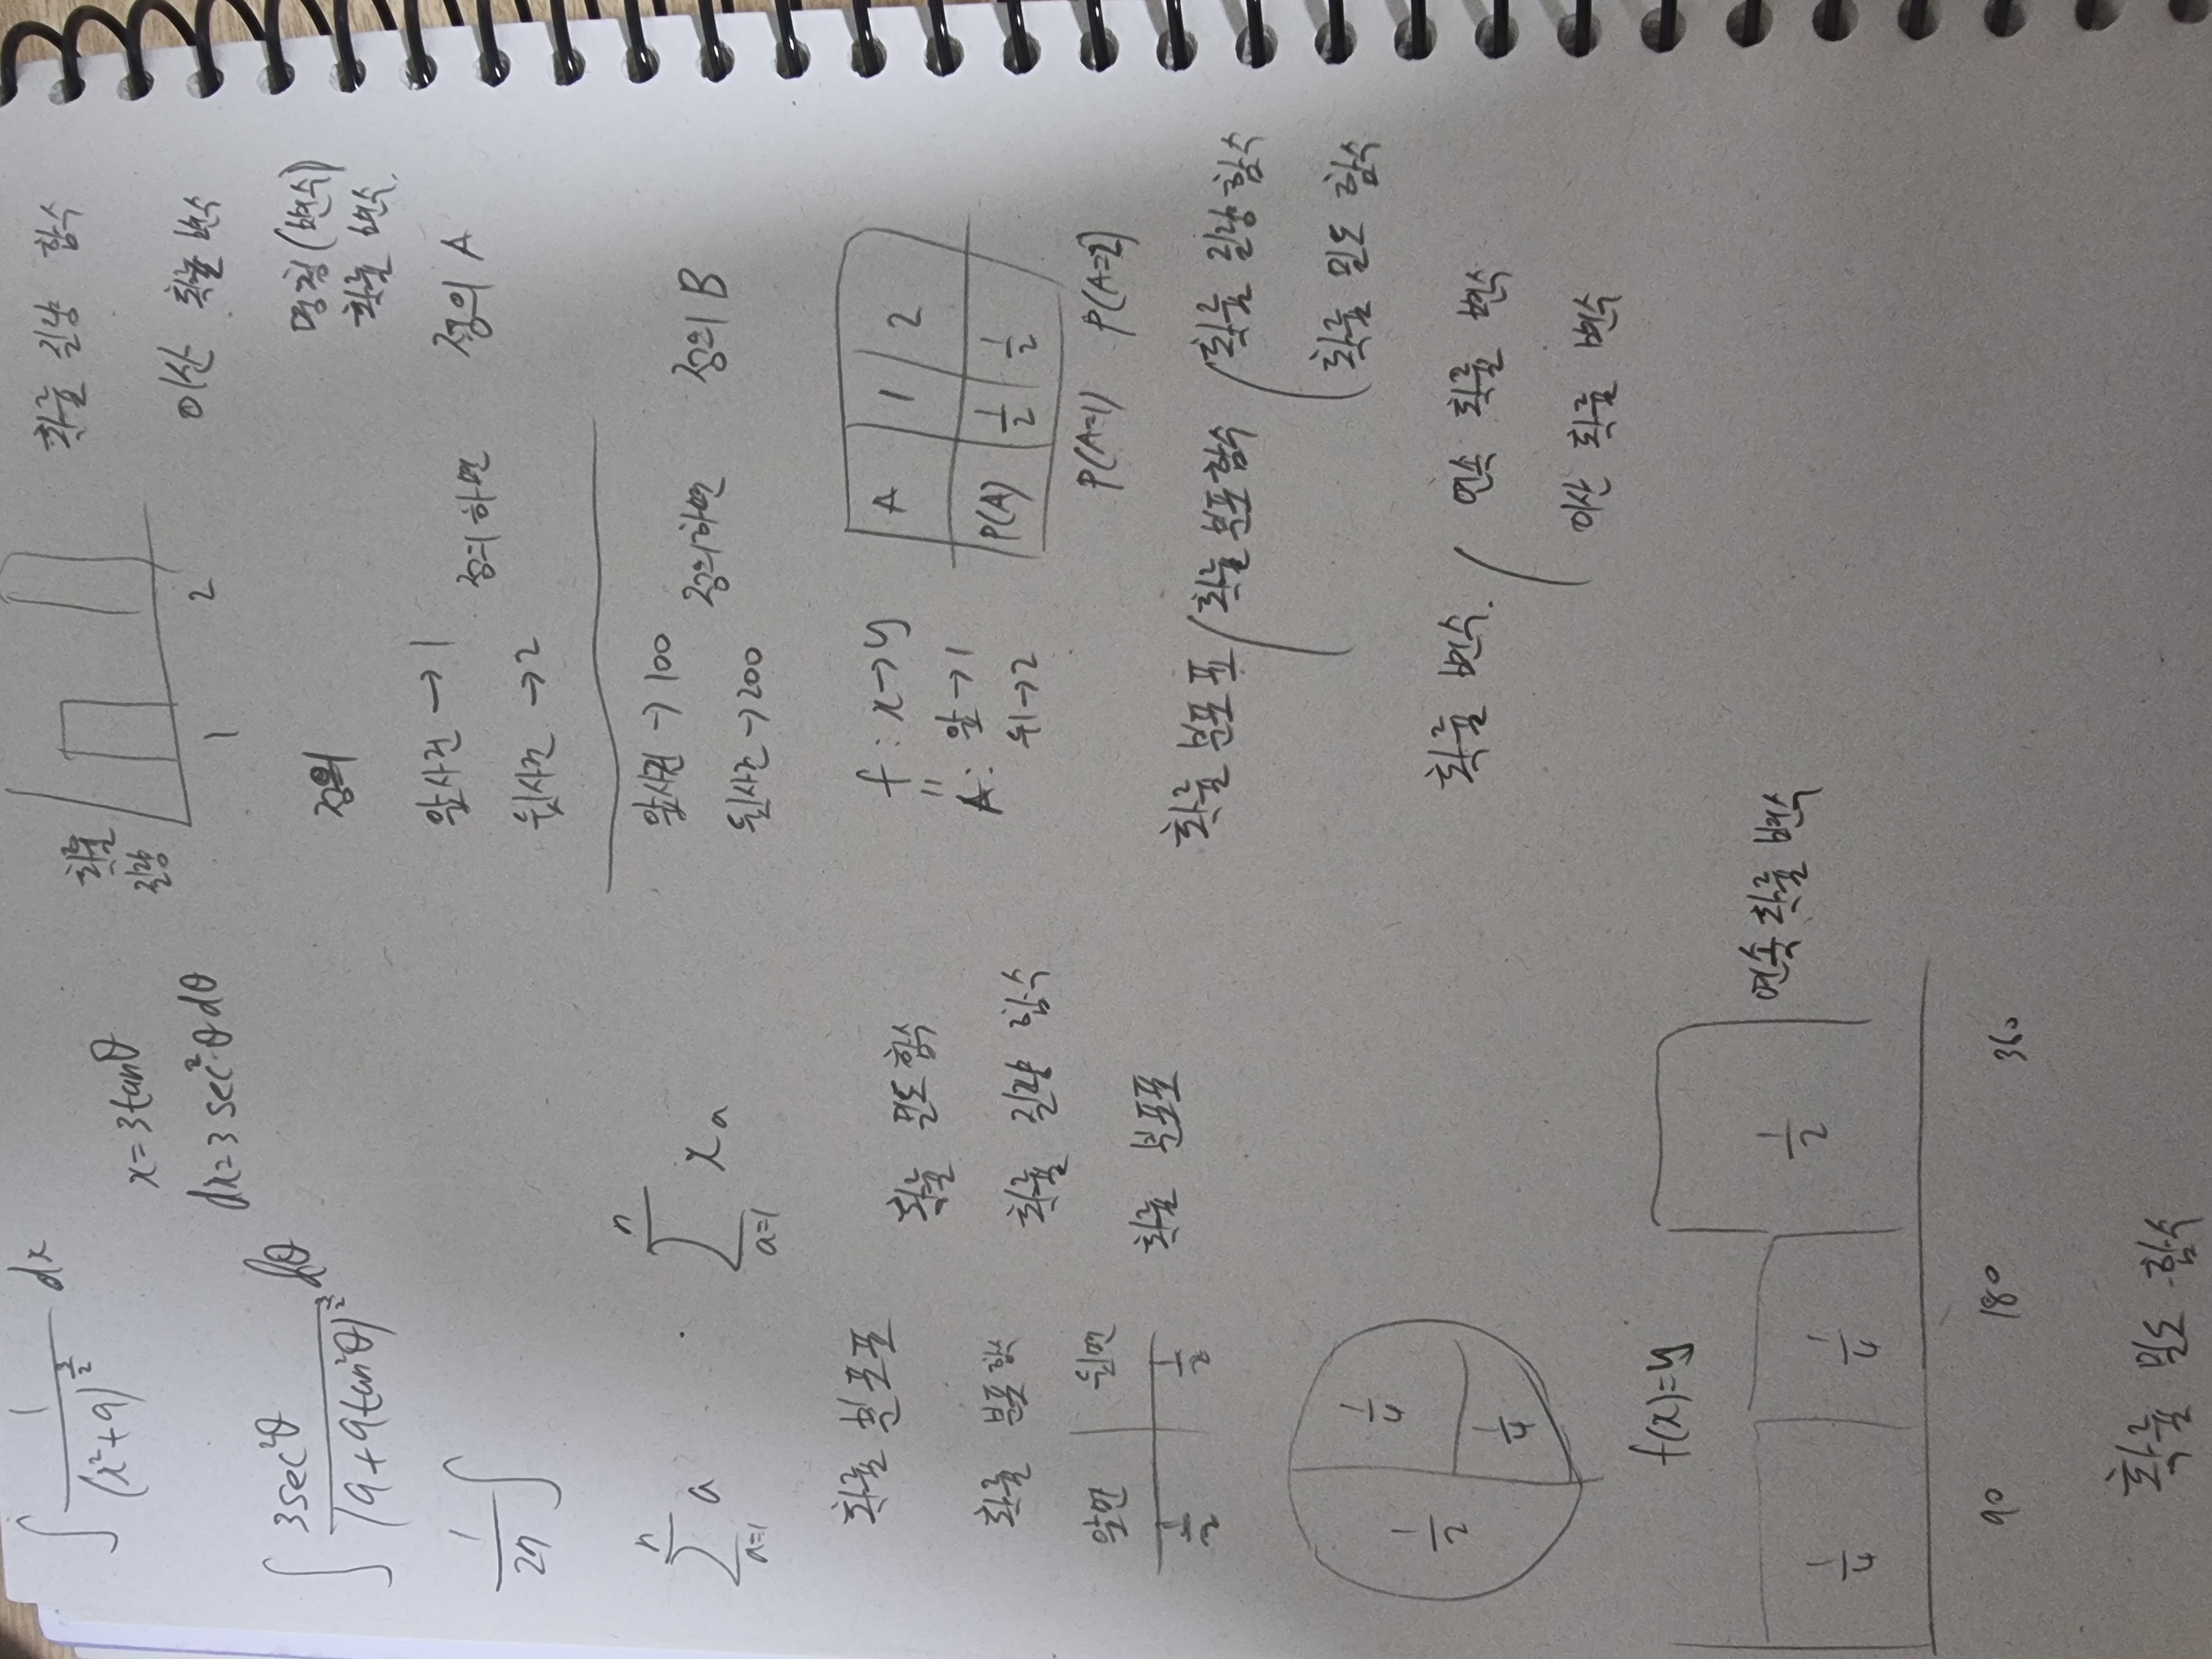 ∫ 1/(x²+9)^(3/2) dx
x=3tanθ
dx=3sec²θdθ
∫ 3sec²θ/(9+9tan²θ)^(3/2) dθ
1/27 ∫
n
∑ a
a=1
n
∑ xₐ
a=1
확률 분포표
확률 밀도 함수
확률 분포 함수
확률 질량 함수
앞면 뒷면
1/2 1/2
확률 분포표
1/2
1/4
1/4
f(x)=y
1/4 1/4 1/2
연속 확률 변수
90 180 360
확률 밀도 함수
확률
질량
1 2
확률 질량 함수
이산 확률 변수
정의
명칭(변수)
확률 변수.
앞사건 → 1
정의 하면 정의 A
뒷사건 → 2
앞사건 → 100
정의하면 정의 B
뒷사건 → 200
f : x → y
"
A: 앞 → 1
뒤 → 2
A 1 2
P(A) 1/2 1/2
P(A=1) P(A=2)
확률 분포 표 / 확률 분포 함수 / 확률 질량 함수
확률 밀도 함수
확률 변수. / 연속 확률 변수
이산 확률 변수